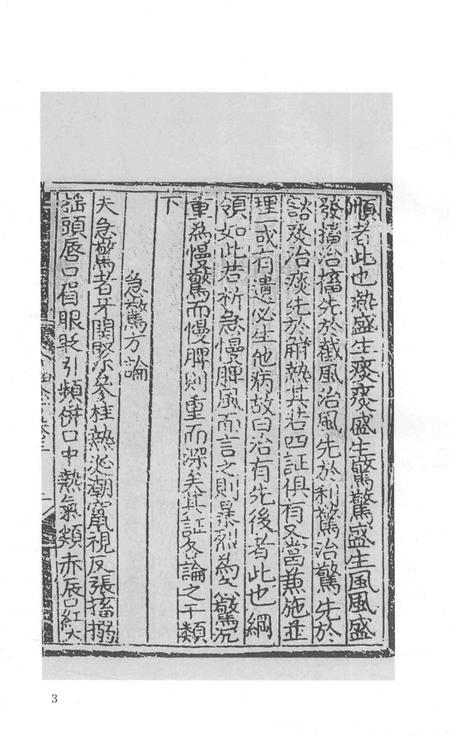 順者此也熱盛生痰痰盛生驚驚盛生風風盛
發搐治搐先於截風治風先於利驚治驚先於
豁痰治痰先於解熱其若四証俱有又當兼施並
理或有遺必生他病故曰治有先後者此也綱
領如此若析急慢脾風而言之則暴烈為急驚沉
重為慢驚而慢脾則重而深矣其証各論之于類
下
急驚方論
夫急驚者牙關緊急壯熱涎潮竄視反張搐搦
搖頭唇口眉眼眨引頻併口中熱氣頰赤唇紅大
3